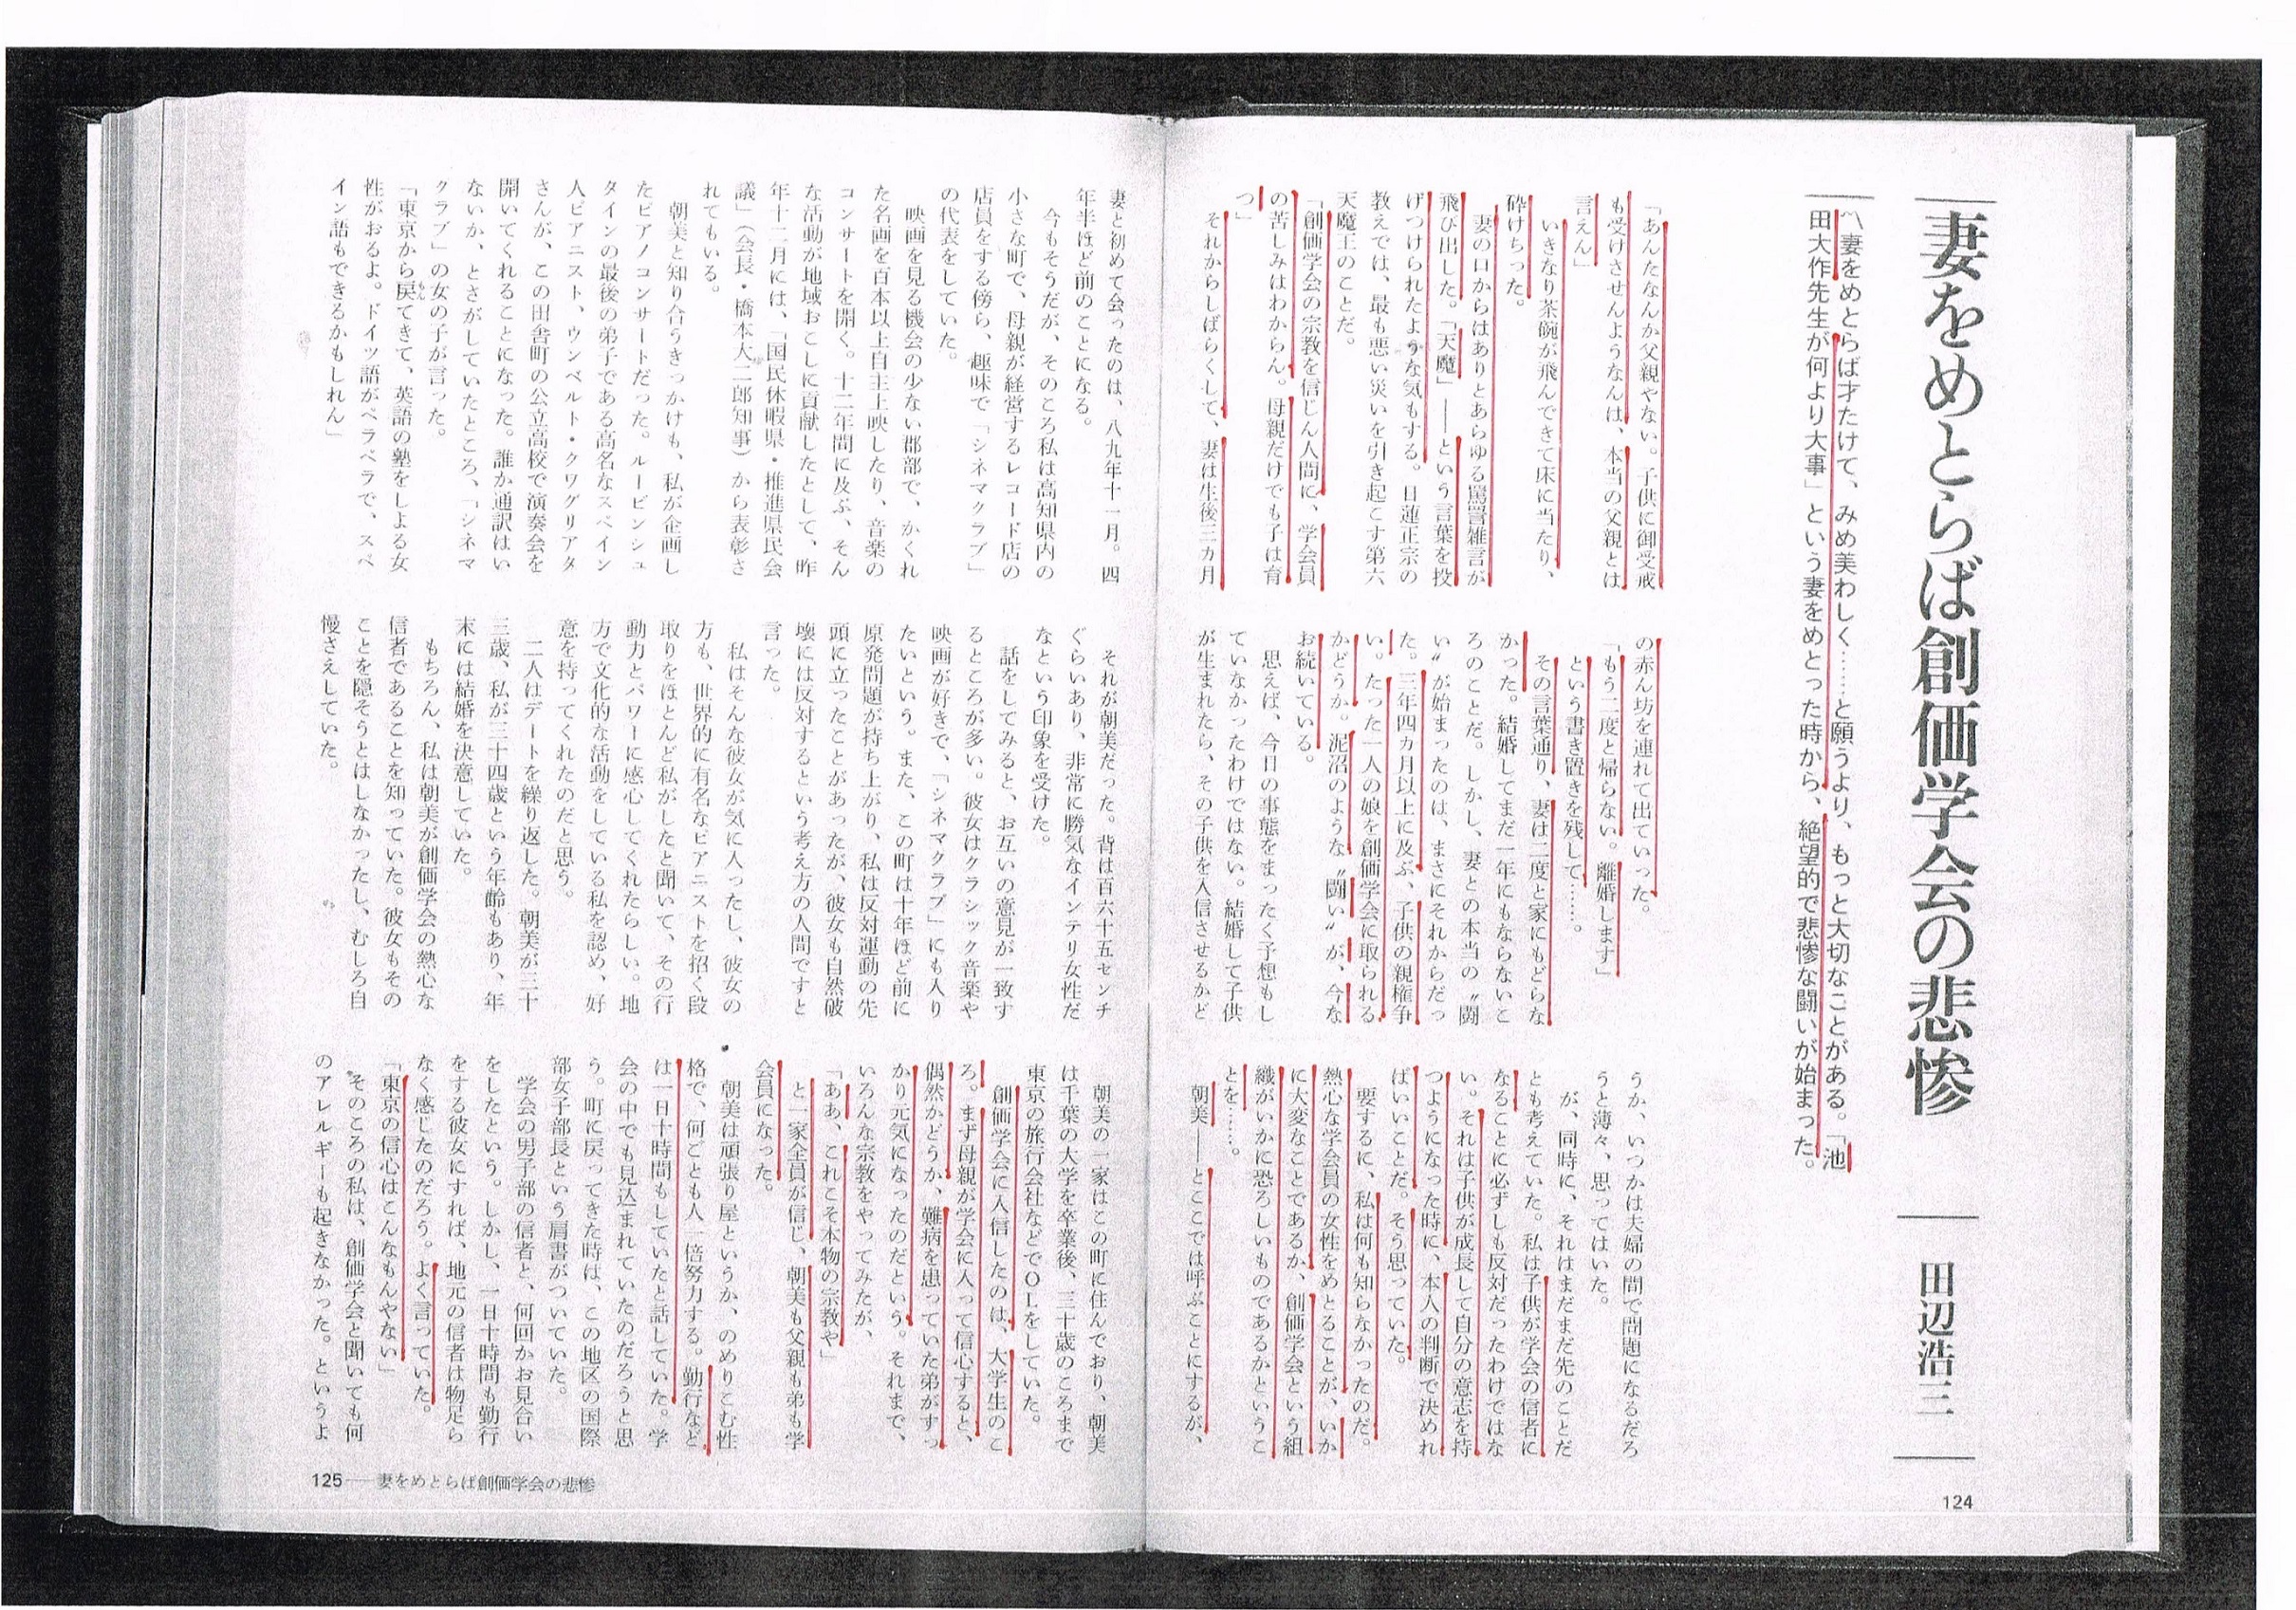 妻をめとらば創価学会の悲惨
田辺浩三
〽妻をめとらば才たけて、みめ美わしく……と願うより、もっと大切なことがある。「池
田大作先生が何より大事」という妻をめとった時から、絶望的で悲惨な闘いが始まった。
「あんたなんか父親やない。子供に御受戒
も受けさせんようなんは、本当の父親とは
言えん」
いきなり茶碗が飛んできて床に当たり、
砕けちった。
妻の口からはありとあらゆる罵詈雑言が
飛び出した。「天魔」――という言葉を投
げつけられたような気もする。日蓮正宗の
教えでは、最も悪い災いを引き起こす第六
天魔王のことだ。
「創価学会の宗教を信じん人間に、学会員
の苦しみはわからん。母親だけでも子は育
つ」
それからしばらくして、妻は生後三カ月
の赤ん坊を連れて出ていった。
「もう二度と帰らない。離婚します」
という書き置きを残して……。
その言葉通り、妻は二度と家にもどらな
かった。結婚してまだ一年にもならないこ
ろのことだ。しかし、妻との本当の〝闘
い〟が始まったのは、まさにそれからだっ
た。三年四カ月以上に及ぶ、子供の親権争
い。たった一人の娘を創価学会に取られる
かどうか。泥沼のような〝闘い〟が、今な
お続いている。
思えば、今日の事態をまったく予想もし
ていなかったわけではない。結婚して子供
が生まれたら、その子供を入信させるかど
うか、いつかは夫婦の間で問題になるだろ
うと薄々、思ってはいた。
が、同時に、それはまだまだ先のことだ
とも考えていた。私は子供が学会の信者に
なることに必ずしも反対だったわけではな
い。それは子供が成長して自分の意志を持
つようになった時に、本人の判断で決めれ
ばいいことだ。そう思っていた。
要するに、私は何も知らなかったのだ。
熱心な学会員の女性をめとることが、いか
に大変なことであるか、創価学会という組
織がいかに恐ろしいものであるかというこ
とを……。
朝美――とここでは呼ぶことにするが、
124
妻と初めて会ったのは、八九年十一月。四
年半ほど前のことになる。
今もそうだが、そのころ私は高知県内の
小さな町で、母親が経営するレコード店の
店員をする傍ら、趣味で「シネマクラブ」
の代表をしていた。
映画を見る機会の少ない郡部で、かくれ
た名画を百本以上自主上映したり、音楽の
コンサートを開く。十二年間に及ぶ、そん
な活動が地域おこしに貢献したとして、昨
年十二月には、「国民休暇県・推進県民会
議」（会長・橋本大二郎知事）から表彰さ
れてもいる。
朝美と知り合うきっかけも、私が企画し
たピアノコンサートだった。ルービンシュ
タインの最後の弟子である高名なスペイン
人ピアニスト、ウンベルト・クワグリアタ
さんが、この田舎町の公立高校で演奏会を
開いてくれることになった。誰か通訳はい
ないか、とさがしていたところ、「シネマ
クラブ」の女の子が言った。
「東京から戻てきて、英語の塾をしよる女
性がおるよ。ドイツ語がペラペラで、スペ
イン語もできるかもしれん」
それが朝美だった。背は百六十五センチ
ぐらいあり、非常に勝気なインテリ女性だ
なという印象を受けた。
話をしてみると、お互いの意見が一致す
るところが多い。彼女はクラシック音楽や
映画が好きで、「シネマクラブ」にも入り
たいという。また、この町は十年ほど前に
原発問題が持ち上がり、私は反対運動の先
頭に立ったことがあったが、彼女も自然破
壊には反対するという考え方の人間ですと
言った。
私はそんな彼女が気に入ったし、彼女の
方も、世界的に有名なピアニストを招く段
取りをほとんど私がしたと聞いて、その行
動力とパワーに感心してくれたらしい。地
方で文化的な活動をしている私を認め、好
意を持ってくれたのだと思う。
二人はデートを繰り返した。朝美が三十
三歳、私が三十四歳という年齢もあり、年
末には結婚を決意していた。
もちろん、私は朝美が創価学会の熱心な
信者であることを知っていた。彼女もその
ことを隠そうとはしなかったし、むしろ自
慢さえしていた。
朝美の一家はこの町に住んでおり、朝美
は千葉の大学を卒業後、三十歳のころまで
東京の旅行会社などでＯＬをしていた。
創価学会に入信したのは、大学生のこ
ろ。まず母親が学会に入って信心すると、
偶然かどうか、難病を患っていた弟がすっ
かり元気になったのだという。それまで、
いろんな宗教をやってみたが、
「ああ、これこそ本物の宗教や」
と一家全員が信じ、朝美も父親も弟も学
会員になった。
朝美は頑張り屋というか、のめりこむ性
格で、何ごとも人一倍努力する。勤行など
は一日十時間もしていたと話していた。学
会の中でも見込まれていたのだろうと思
う。町に戻ってきた時は、この地区の国際
部女子部長という肩書がついていた。
学会の男子部の信者と、何回かお見合い
をしたという。しかし、一日十時間も勤行
をする彼女にすれば、地元の信者は物足ら
なく感じたのだろう。よく言っていた。
「東京の信心はこんなもんやない」
そのころの私は、創価学会と聞いても何
のアレルギーも起きなかった。というよ
125――妻をめとらば創価学会の悲惨